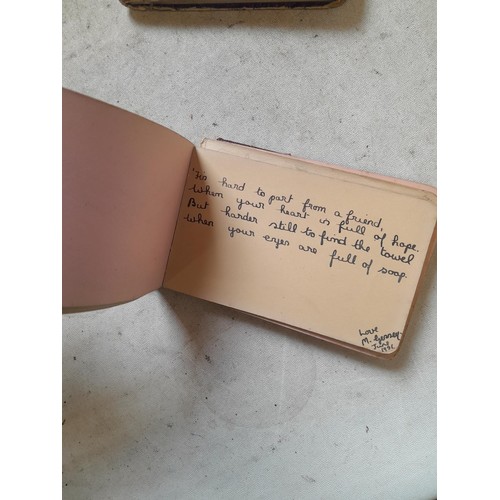 'Tis hard to part from a friend,
when your heart is full of hope.
But harder still to find the towel
when your eyes are full of soap.
Love
M.
June